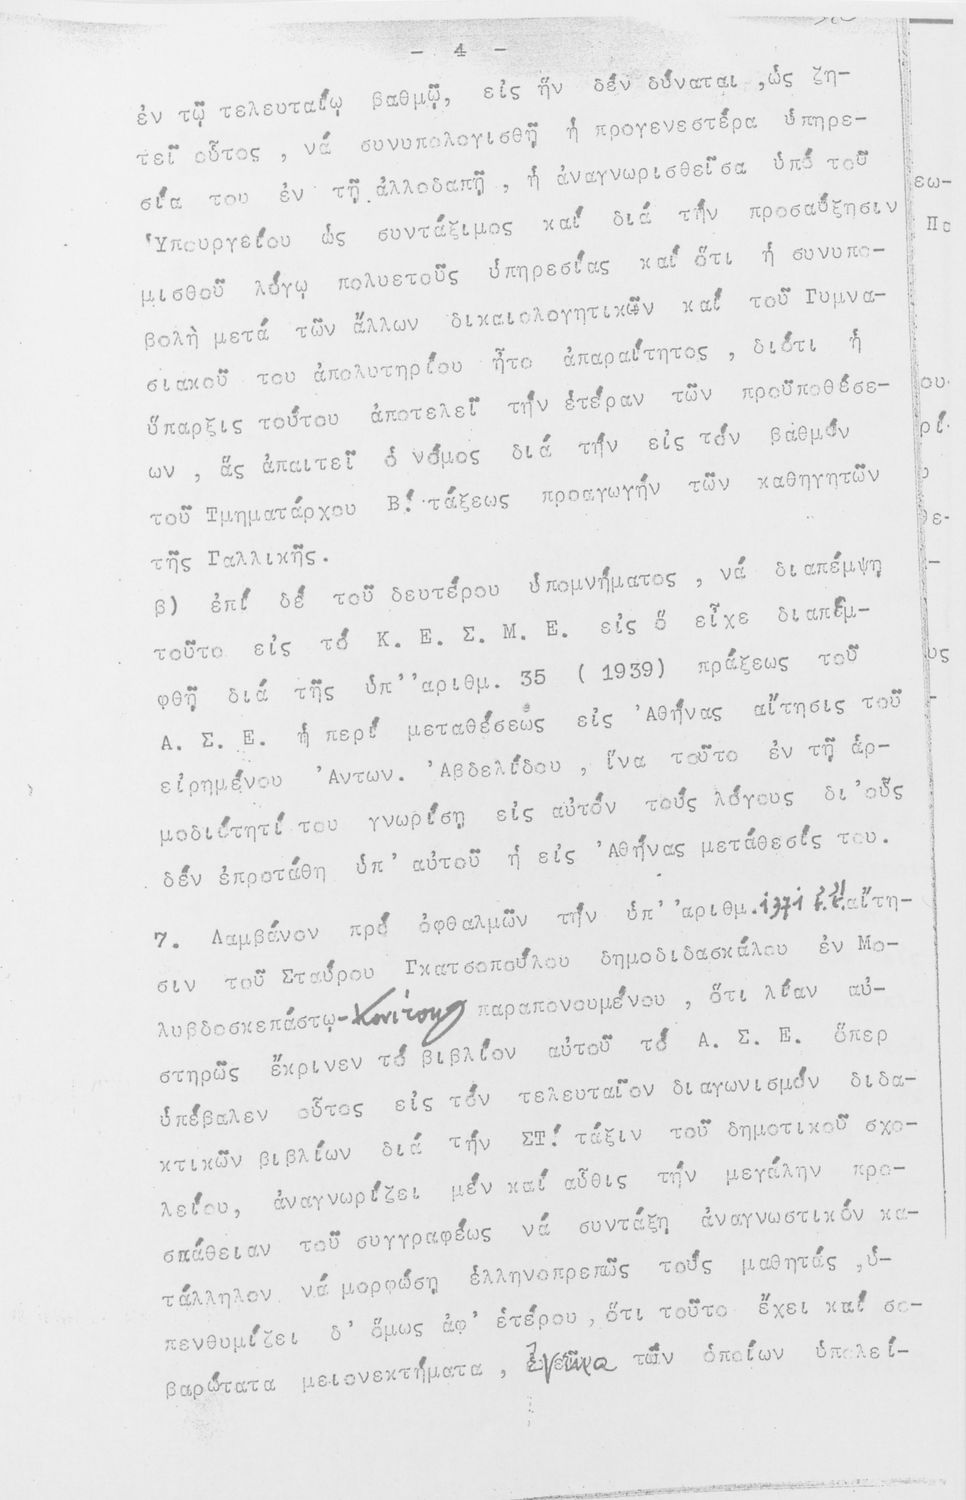 - 4 -
ἐν τῷ τελευταίῳ βαθμῷ, εἰς ἥν δέν δύναται ,ὡς ζη-
τεῖ οὗτος , νά συνυπολογισθῇ ἡ προγενεστέρα ὑπηρε-
σία του ἐν τῇ ἀλλοδαπῇ , ἡ ἀναγνωρισθεῖσα ὑπό τοῦ
Ὑπουργείου ὡς συντάξιμος καί διά τήν προσαύξησιν
μισθοῦ λόγῳ πολυετοῦς ὑπηρεσίας καί ὅτι ἡ συνυπο-
βολὴ μετά τῶν ἄλλων δικαιολογητικῶν καί τοῦ Γυμνα-
σιακοῦ του ἀπολυτηρίου ἦτο ἀπαραίτητος , διότι ἡ
ὕπαρξις τούτου ἀποτελεῖ τήν ἑτέραν τῶν προϋποθέσε-
ων , ἅς ἀπαιτεῖ ὁ νόμος διά τήν εἰς τόν βαθμόν
τοῦ Τμηματάρχου Β! τάξεως προαγωγήν τῶν καθηγητῶν
τῆς Γαλλικῆς.
β) ἐπί δέ τοῦ δευτέρου ὑπομνήματος , νά διαπέμψῃ
τοῦτο εἰς τό Κ. Ε. Σ. Μ. Ε. εἰς ὅ εἶχε διαπεμ-
φθῆ διά τῆς ὑπ''αριθμ. 35 ( 1939) πράξεως τοῦ
Α. Σ. Ε. ἡ περί μεταθέσεώς εἰς 'Αθήνας αἴτησις τοῦ
εἰρημένου 'Αντων. 'Αβδελίδου , ἵνα τοῦτο ἐν τῇ ἁρ-
μοδιότητί του γνωρίσῃ εἰς αὐτόν τούς λόγους δι'οὕς
δέν ἐπροτάθη ὑπ' αὐτοῦ ἡ εἰς 'Αθήνας μετάθεσίς του.
7. Λαμβάνον πρό ὀφθαλμῶν τήν ὑπ' 'αριθμ.1371 ἐ.ἔ. αἴτη-
σιν τοῦ Σταύρου Γκατσοπούλου δημοδιδασκάλου ἐν Μο-
λυβδοσκεπάστῳ-Κονίτσης παραπονουμένου , ὅτι λίαν αὐ-
στηρῶς ἔκρινεν τό βιβλίον αὐτοῦ τό Α. Σ. Ε. ὅπερ
ὑπέβαλεν οὗτος εἰς τόν τελευταῖον διαγωνισμόν διδα-
κτικῶν βιβλίων διά τήν ΣΤ! τάξιν τοῦ δημοτικοῦ σχο-
λείου, ἀναγνωρίζει μέν καί αὖθις τήν μεγάλην προ-
σπάθειαν τοῦ συγγραφέως νά συντάξῃ ἀναγνωστικόν κα-
τάλληλον νά μορφώσῃ ἑλληνοπρεπῶς τούς μαθητάς ,ὑ-
πενθυμίζει δ' ὅμως ἀφ' ἑτέρου , ὅτι τοῦτο ἔχει καί σο-
βαρώτατα μειονεκτήματα , ἕνεκα τῶν ὁποίων ὑπολεί-